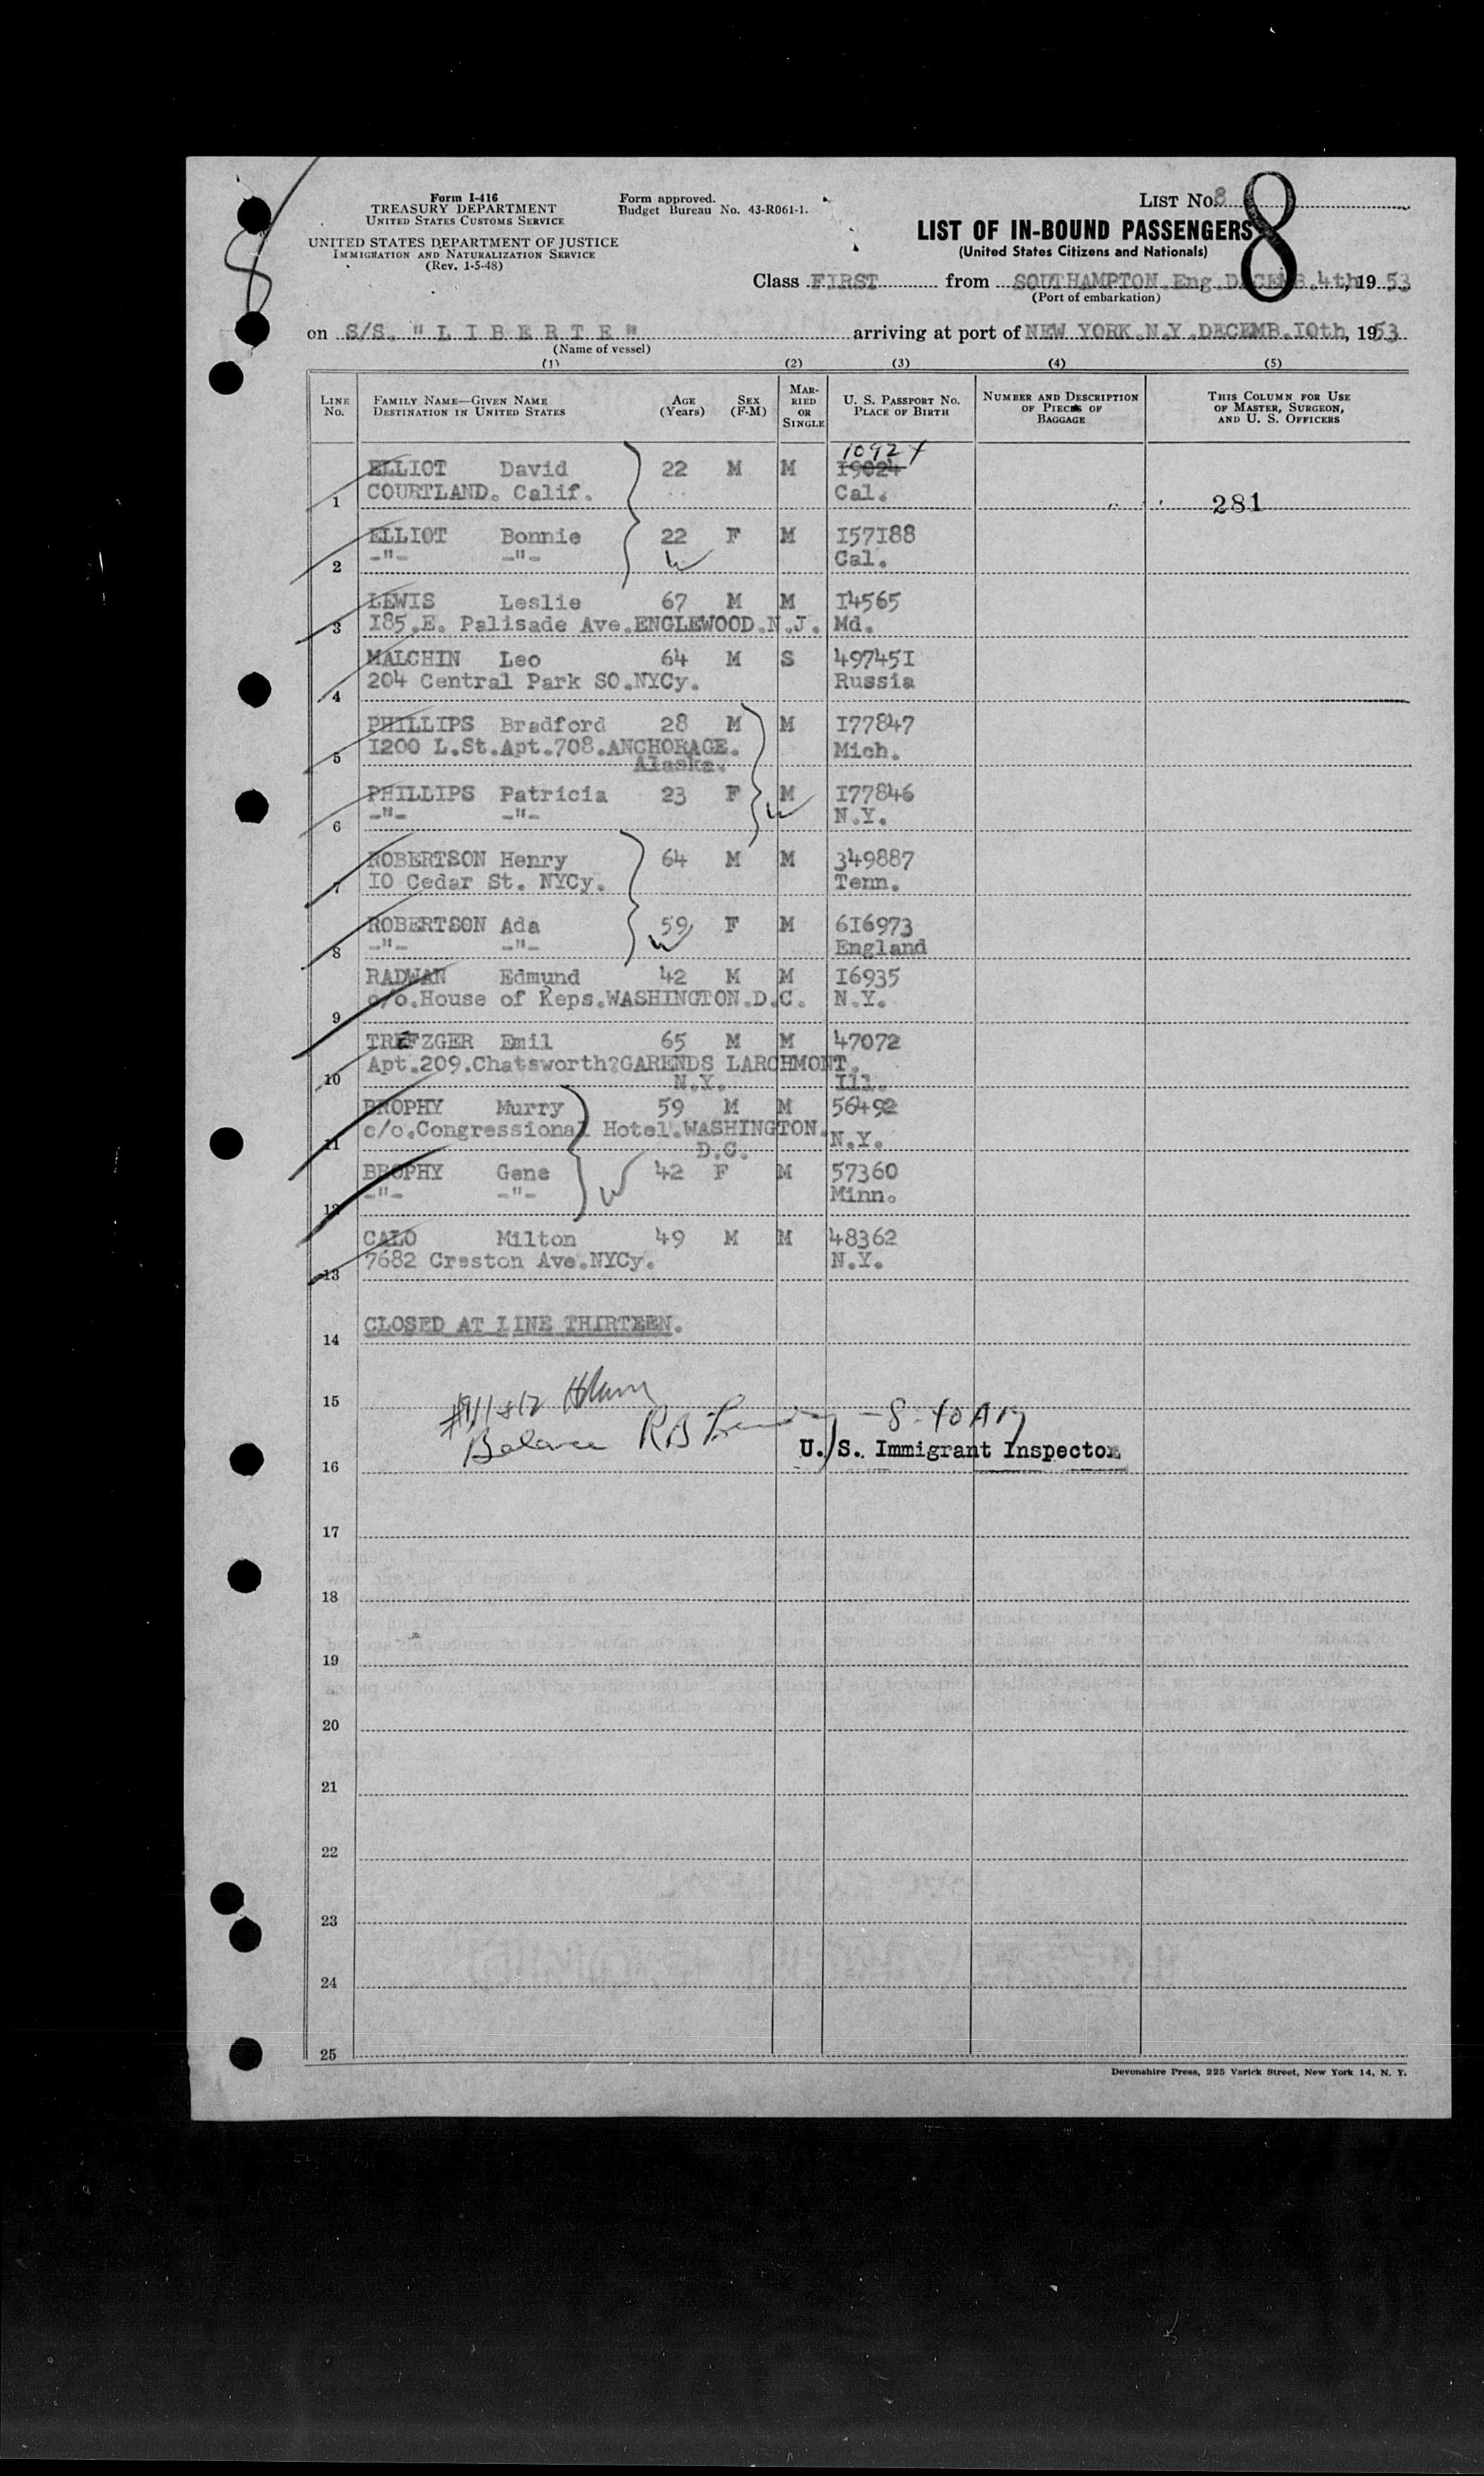 Form I-416
TREASURY DEPARTMENT
UNITED STATES CUSTOMS SERVICE
UNITED STATES DEPARTMENT OF JUSTICE
IMMIGRATION AND NATURALIZATION SERVICE
(Rev. 1-5-48)
Form approved.
Budget Bureau No. 43-R061-1.
LIST No. 8
8
8
LIST OF IN-BOUND PASSENGERS
(United States Citizens and Nationals)
Class FIRST from SOUTHAMPTON.Eng.DECEMB.4th, 19 53
(Port of embarkation)
on S/S. "L I B E R T E" arriving at port of NEW YORK.N.Y.DECEMB.IOth, 1953
(Name of vessel)
(1) (2) (3) (4) (5)
LINE No. FAMILY NAME—GIVEN NAME DESTINATION IN UNITED STATES AGE (Years) SEX (F-M) MARRIED OR SINGLE U. S. PASSPORT NO. PLACE OF BIRTH NUMBER AND DESCRIPTION OF PIECES OF BAGGAGE THIS COLUMN FOR USE OF MASTER, SURGEON, AND U. S. OFFICERS
10924
ELLIOT David 22 M M I9024
1 COURTLAND. Calif. Cal. 281
ELLIOT Bonnie 22 F M I57I88
2 -"- -"- Cal.
LEWIS Leslie 67 M M I4565
3 I85.E. Palisade Ave.ENGLEWOOD.N.J. Md.
MALCHIN Leo 64 M S 49745I
4 204 Central Park SO.NYCy. Russia
PHILLIPS Bradford 28 M M I77847
5 I200 L.St.Apt.708.ANCHORAGE. Mich.
Alaska.
PHILLIPS Patricia 23 F M I77846
6 -"- -"- N.Y.
ROBERTSON Henry 64 M M 349887
7 IO Cedar St. NYCy. Tenn.
ROBERTSON Ada 59 F M 6I6973
8 -"- -"- England
RADWAN Edmund 42 M M I6935
9 c/o.House of Reps.WASHINGTON.D.C. N.Y.
TREFZGER Emil 65 M M 47072
10 Apt.209.Chatsworth?GARENDS LARCHMONT.
N.Y. Ill.
BROPHY Murry 59 M M 56492
11 c/o.Congressional Hotel.WASHINGTON. N.Y.
D.C.
BROPHY Gene 42 F M 57360
12 -"- -"- Minn.
CALO Milton 49 M M 48362
13 7682 Creston Ave.NYCy. N.Y.
14 CLOSED AT LINE THIRTEEN.
15 - 8-40 AM
Balance
16 U. S. Immigrant Inspector
17
18
19
20
21
22
23
24
25
Devonshire Press, 225 Varick Street, New York 14, N. Y.